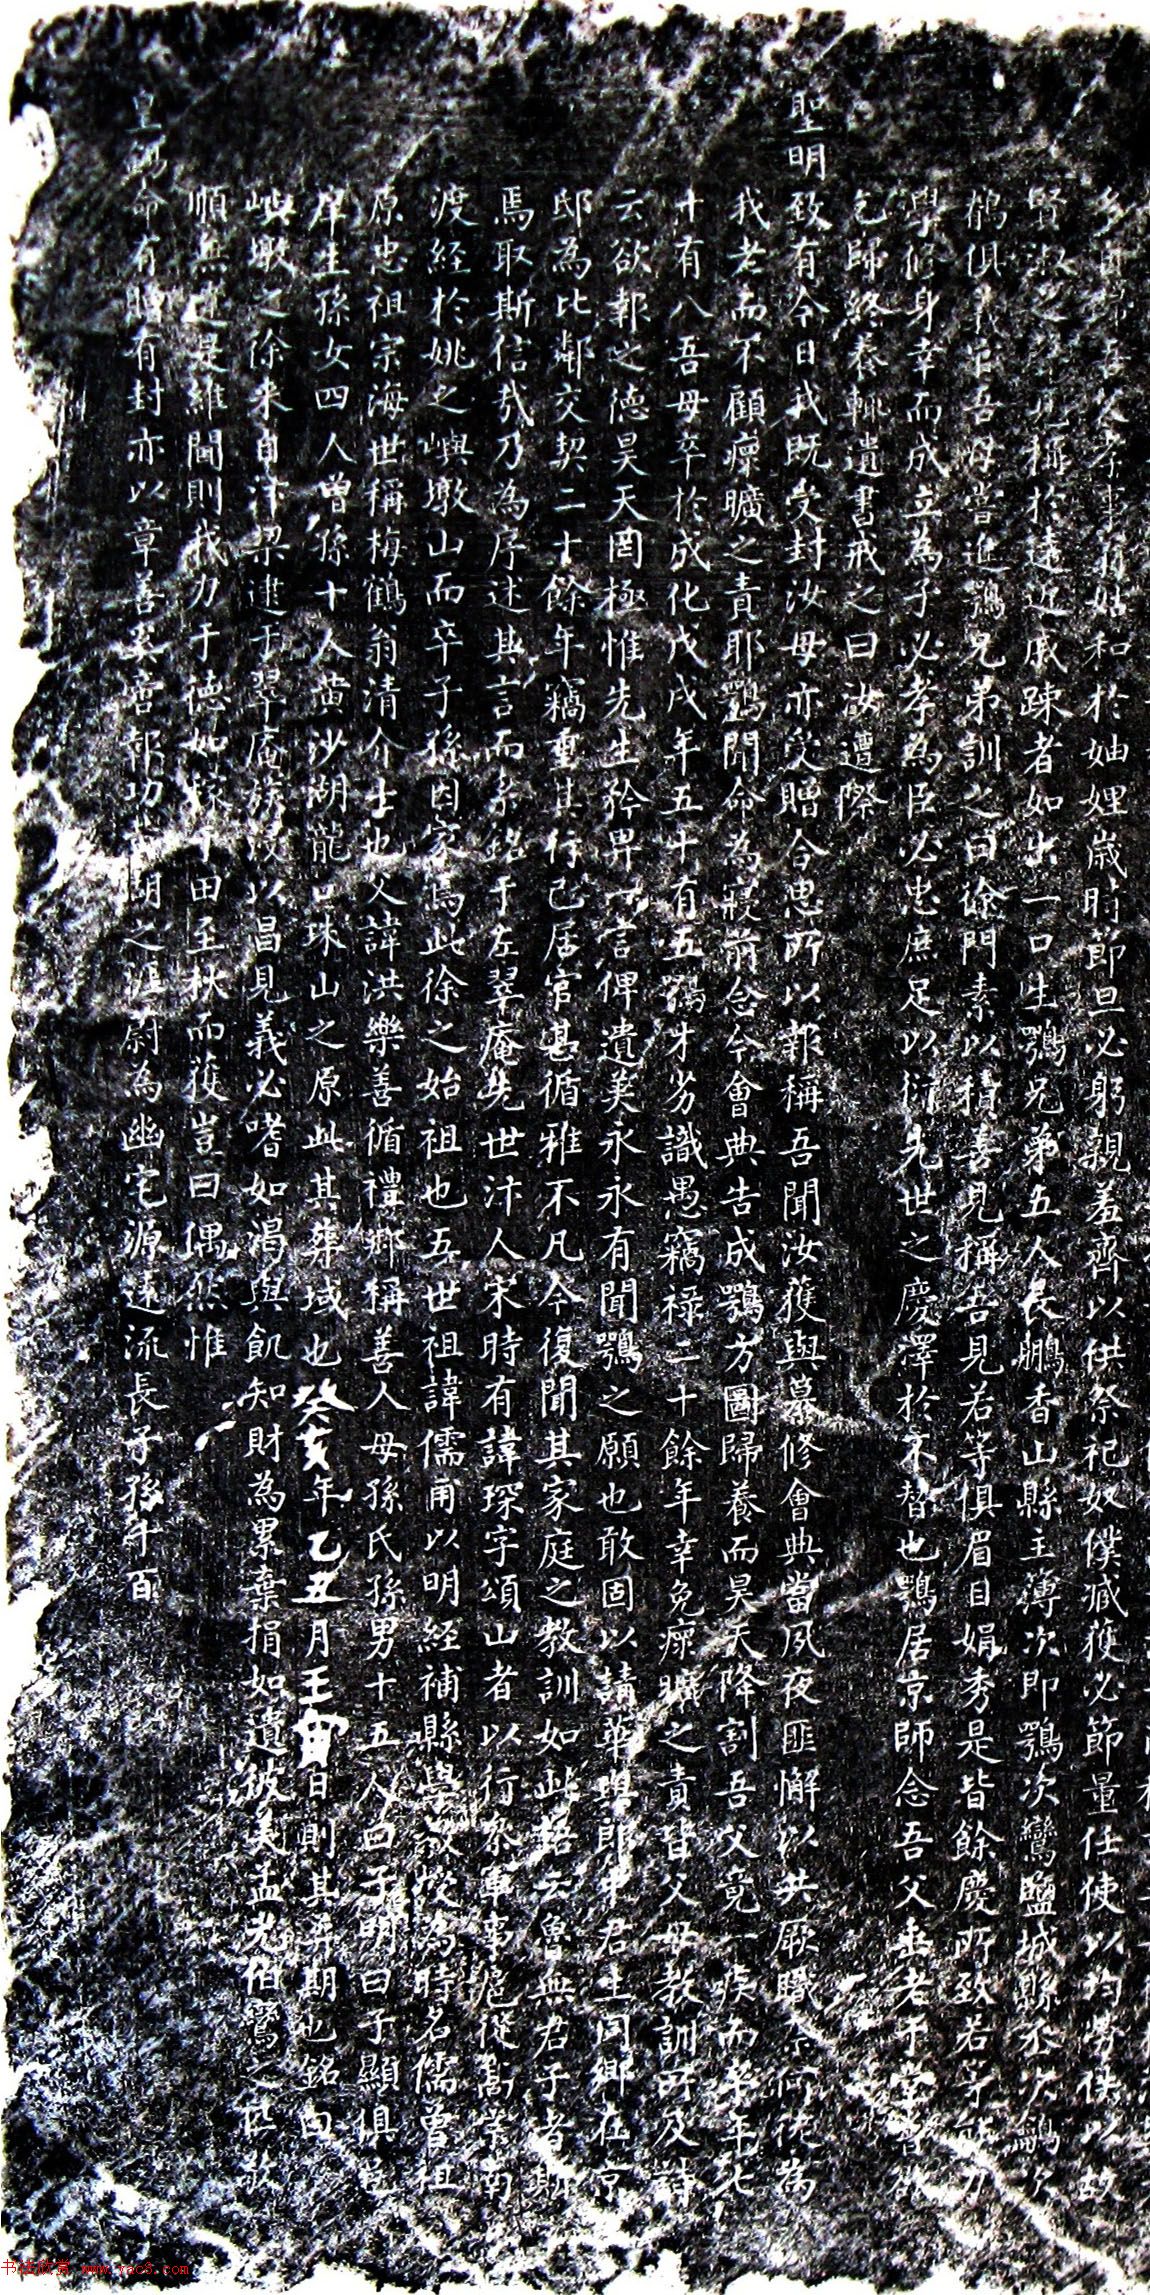 吾父 事 姑和於妯娌歲時節旦必躬親羞齊以供祭祀奴僕臧獲必節量任使以均勞佚以故
賢淑之 見稱於遠近戚疎者如出一口生鶚兄弟五人長鵬香山縣主簿次即鶚次鸞鹽城縣丞次鸍次
鶴俱 官吾母嘗進鶚兄弟訓之曰徐門素以積善見稱吾見若等俱眉目娟秀是皆餘慶所致若等 力
學修身幸而成立為子必孝為臣必忠庶足以衍先世之慶澤於不替也鶚居京師念吾父垂老于堂 欲
乞歸終養輒遺書戒之曰汝遭際
聖明致有今日我既受封汝母亦受贈合思所以報稱吾聞汝獲與纂修會典當夙夜匪懈以共厥職柰何徒為
我老而不顧瘝曠之責耶鶚聞命為寢前念今會典告成鶚方圖歸養而昊天降割吾父竟一疾而卒年七
十有八吾母卒於成化戊戌年五十有五鶚才劣識愚竊祿二十餘年幸免瘝曠之責皆父母教訓所及詩
云欲報之德昊天罔極惟先生矜畀一言俾遺美永永有聞鶚之願也敢固以請華與郎中君生同鄉在京
邸為比鄰交契二十餘年竊重其行己居官甚循雅不凡今復聞其家庭之教訓如此語云魯無君子者斯
焉取斯信哉乃為序述其言而系銘于左翠庵先世汴人宋時有諱琛字頌山者以行參軍事扈從高宗南
渡經於姚之嶼墩山而卒子孫因家焉此徐之始祖也五世祖諱儒甫以明經補縣學教授為時名儒曾祖
原忠祖宗海世稱梅鶴翁清介士也父諱洪樂善循禮鄉稱善人母孫氏孫男十五人曰子明曰子顯俱邑
庠生孫女四人曾孫十人茁沙湖龍口珠山之原此其葬域也癸亥年乙丑月壬寅日則其葬期也銘曰
嶼墩之徐來自汴梁逮于翠庵族汶以昌見義必嗜如渴與飢知財為累棄捐如遺彼美孟光伯鸞之匹敬
順無違是維閫則我力于德如稼于田至秋而獲豈曰偶然惟
皇 命有 有封亦以章善 宮報功 湖之 蔚為幽宅源遠流長子孫千百
书法欣赏 www.yac8.com